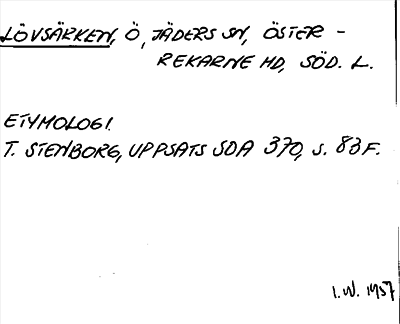 LÖVSÄRKEN, Ö, JÄDERS SN, ÖSTER-
REKARNE HD, SÖD. L.
ETYMOLOGI.
T. STENBORG, UPPSATS SOA 370, s. 83 F.
I.W. 1957